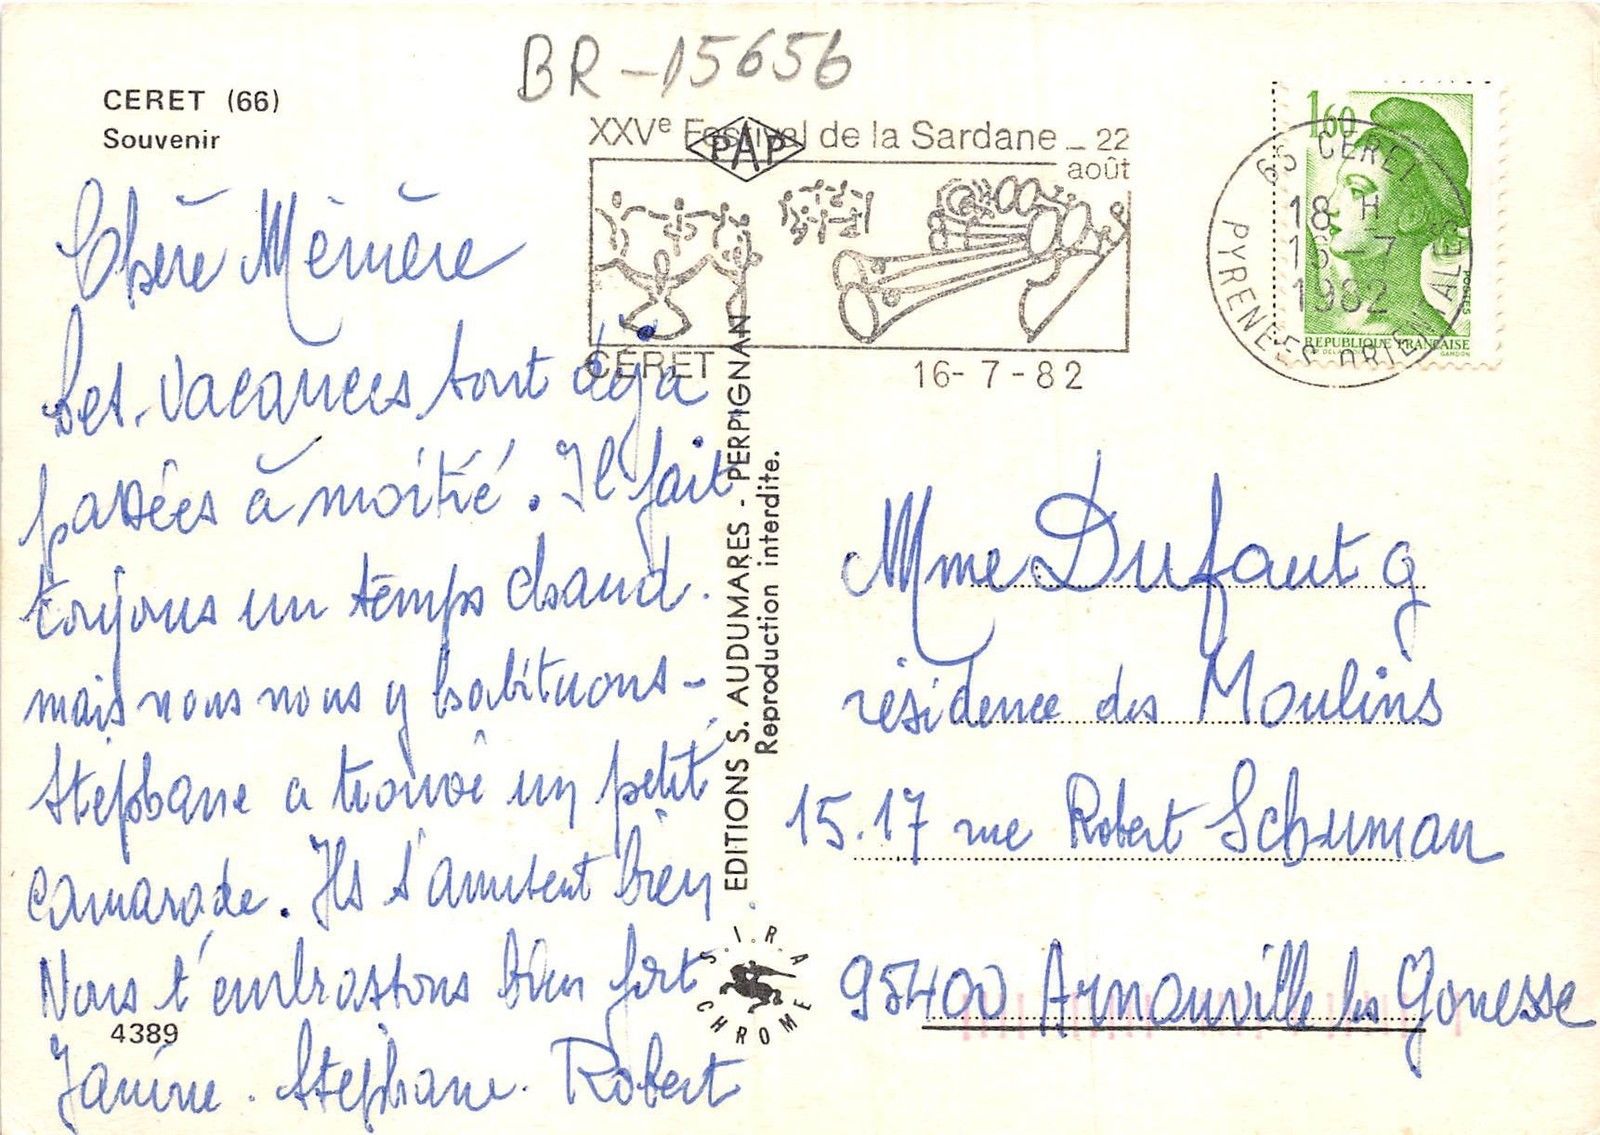 BR-15656
CERET (66)
Souvenir
XXVe Festival de la Sardane _ 22
août
PAP
CÉRET
16-7-82
1,60
66 CERET
18 H
16-7
1982
PYRENEES ORIENTALES
POSTES
REPUBLIQUE FRANÇAISE
GANDON
Chère Mémère
Les vacances sont déjà
passées à moitié. Il fait
toujours un temps chaud.
mais nous nous y habituons-
Stéphane a trouvé un petit
camarade. Ils s'amusent bien.
Nous t'embrassons bien fort
Janine. Stéphane. Robert
4389
EDITIONS S. AUDUMARES - PERPIGNAN
Reproduction interdite.
S.I.R.A
CHROME
Mme Dufaut g
résidence des Moulins
15.17 rue Robert Schuman
95400 Arnouville les Gonesse